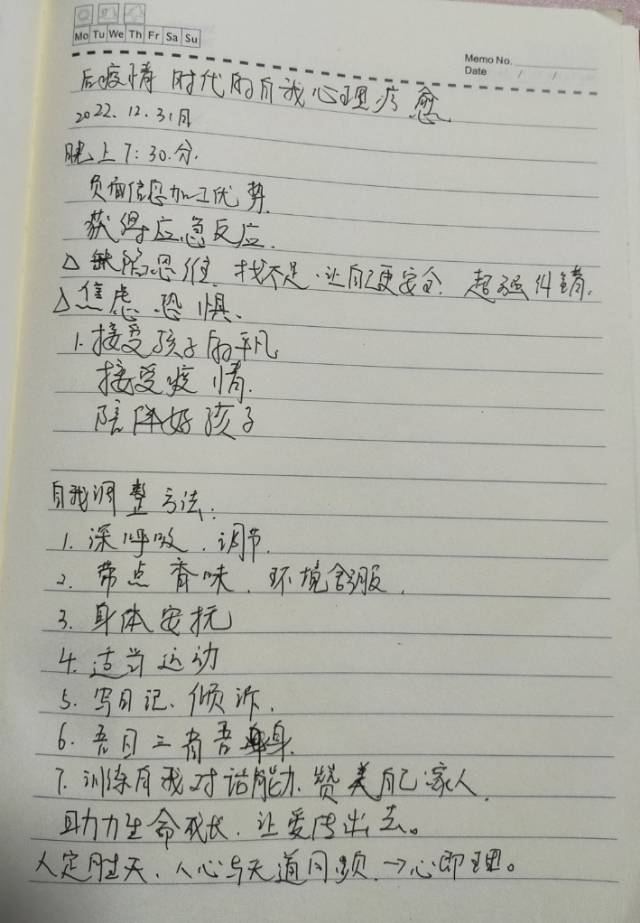 Mo Tu We Th Fr Sa Su
Memo No.
Date / /
后疫情时代的自我心理疗愈
2022.12.31月
晚上7:30.分.
负面信息加工优势.
获得应急反应.
△缺陷思维.找不足.让自己更安全.超强纠错.
△焦虑.恐惧.
1.接受孩子的平凡
接受疫情.
陪伴好孩子
自我调整方法:
1.深呼吸.调节.
2.带点香味.环境舒服.
3.身体安抚
4.适当运动
5.写日记、倾诉.
6.吾日三省吾身.
7.训练自我对话能力.赞美自己家人.
助力生命成长.让爱传出去。
人定胜天.人心与天道同频.→心即理。